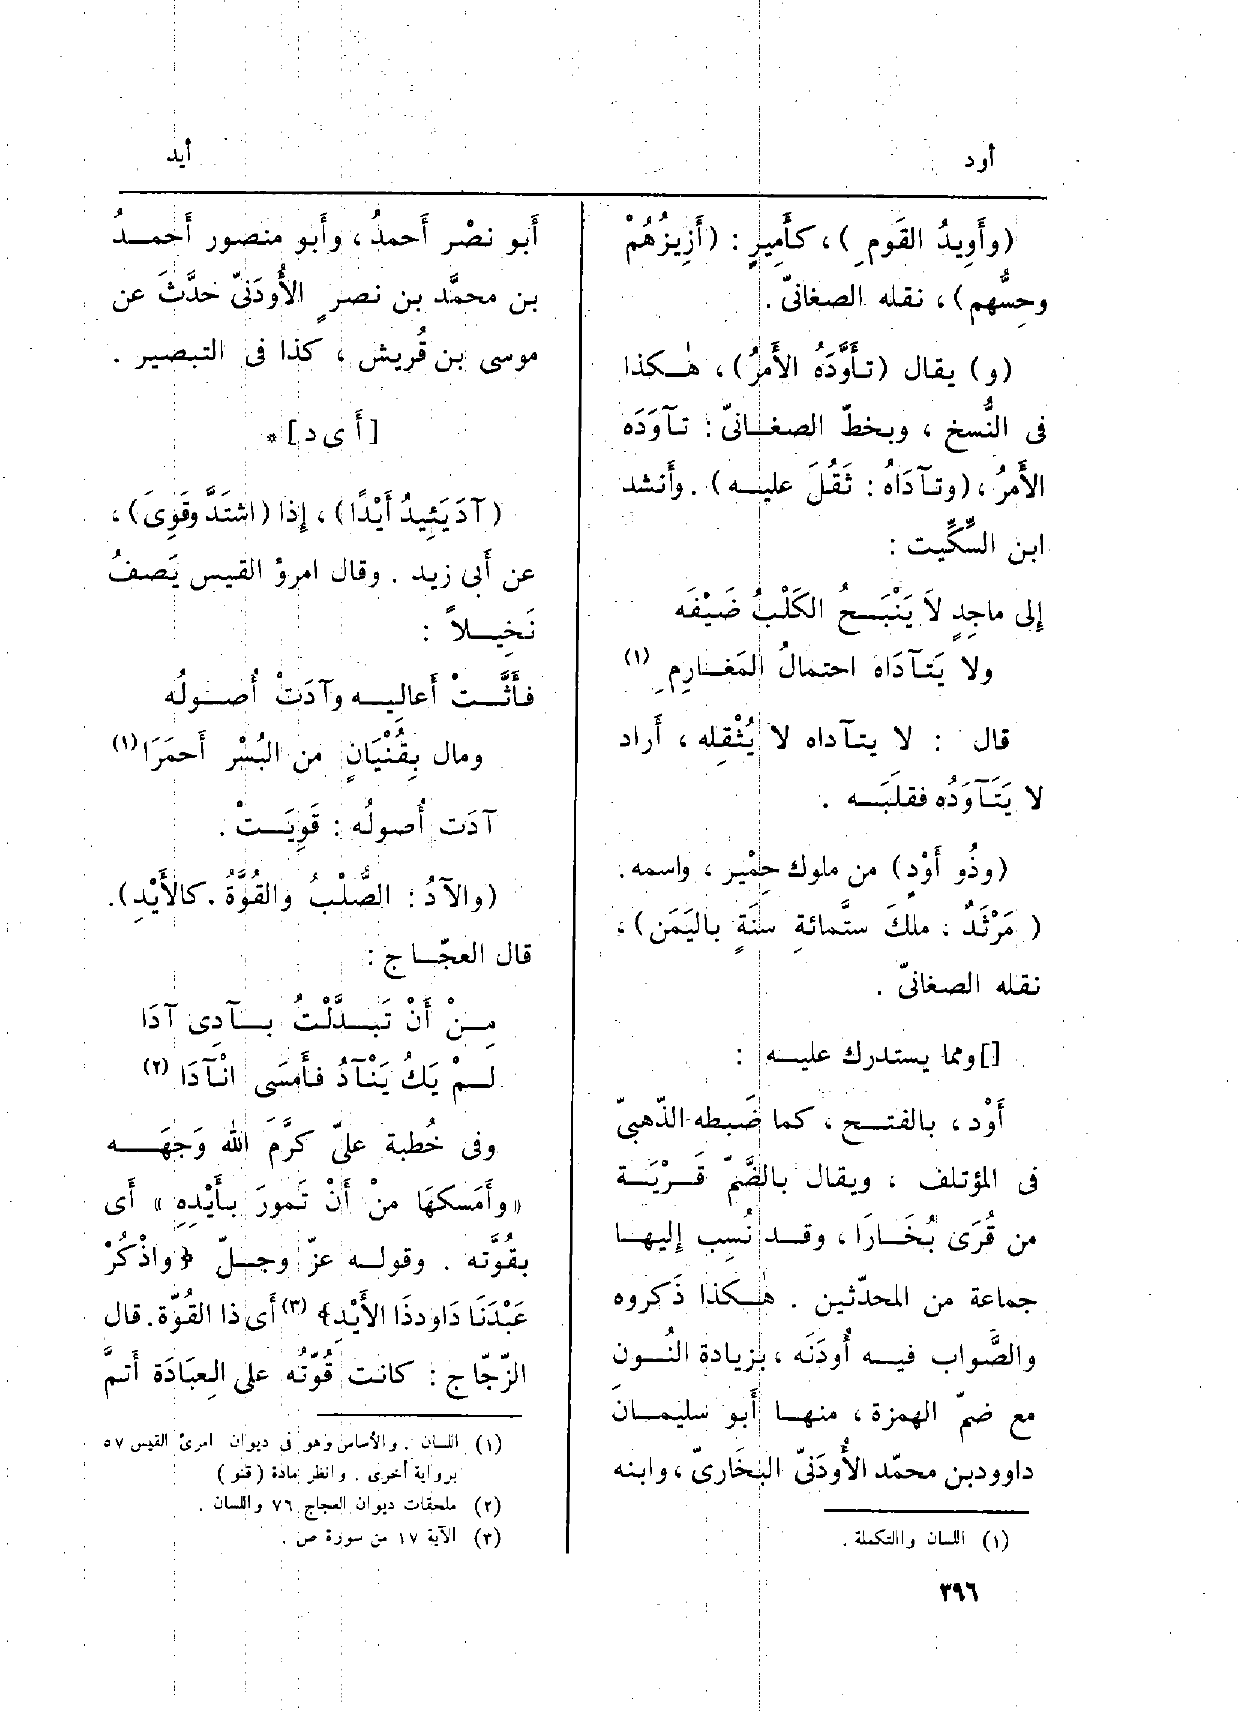 أود
أيد
(وأَوِيدُ القَومِ )، كأَمِيرٍ : (أَزِيزُهُمْ
وحِسُّهم) ، نقله الصغانىّ .
(و) يقال (تأَوَّدَهُ الأَمرُ)، هٰكذا
فى النُّسخ ، وبخطّ الصغانىّ : تآوَدَه
الأَمرُ، (وتآدَاهُ : ثَقُلَ عليه) . وأَنشد
ابن السِّكِّيت :
إلى ماجِدٍ لاَ يَنْبَحُ الكَلْبُ ضَيْفَه
ولا يَتآدَاه احتمالُ المَغارِمِ (١)
قال : لا يتآداه لا يُثْقِله ، أَراد
لا يَتَآوَدُه فقلبَه .
(وذُو أَوْدٍ) من ملوك حِمْير ، واسمه.
( مَرْثَدٌ : ملكَ ستَّمائةِ سنَةٍ باليَمَن)،
نقله الصغانىّ .
[] ومما يستدرك عليه :
أَوْد ، بالفتح ، كما ضَبطه الذّهبىّ
فى المؤتلف ، ويقال بالضَّمّ قَرْيَة
من قُرَى بُخَارَا ، وقد نُسِب إليها
جماعة من المحدّثين . هٰكذا ذَكروه
والصَّواب فيه أُودَنَه ، بزيادة النُون
مع ضمّ الهمزة ، منها أَبو سليمانَ
داوودبن محمّد الأُودَنىّ البُخَارىّ ، وابنه
(١) اللسان والتكملة .
أَبو نصْر أَحمدُ ، وأَبو منصور أَحمدُ
بن محمَّد بن نصرٍ الأُودَنىّ حدَّثَ عن
موسى بن قُريش ، كذا فى التبصير .
[أ ى د] *
(آدَ يَئِيدُ أَيْدًا) ، إذا (اشتَدَّ وقَوِىَ)،
عن أَبى زيد . وقال امرؤ القيس يَصفُ
نَخِيلاً :
فأَثَّتْ أَعاليه وآدَتْ أُصولُه
ومال بِقُنْيَانٍ من البُسْرِ أَحمَرَا (١)
آدَت أُصولُه : قَوِيَتْ .
(والآدُ : الصُّلْبُ والقُوَّةُ . كالأَيْدِ).
قال العجّاج :
مِنْ أَنْ تَبدَّلْتُ بآدِى آدَا
لَمْ يَكُ يَنْآدُ فأَمسَى انْآدَا (٢)
وفى خُطبة علىّ كرَّم الله وَجهَه
«وأَمسَكهَا منْ أَنْ تَمورَ بأَيْدِهِ» أَى
بقُوَّته . وقوله عزّ وجلّ ﴿واذْكُرْ
عَبْدَنَا دَاوودَ ذَا الأَيْدِ﴾ (٣) أَى ذا القُوَّة . قال
الزّجّاج : كانت قُوّتُه على العِبَادَة أَتمَّ
(١) اللسان . والأساس وهو فى ديوان امرئ القيس ٥٧
برواية أخرى . وانظر مادة (قنو)
(٢) ملحقات ديوان العجاج ٧٦ واللسان .
(٣) الآية ١٧ من سورة ص .
٣٩٦